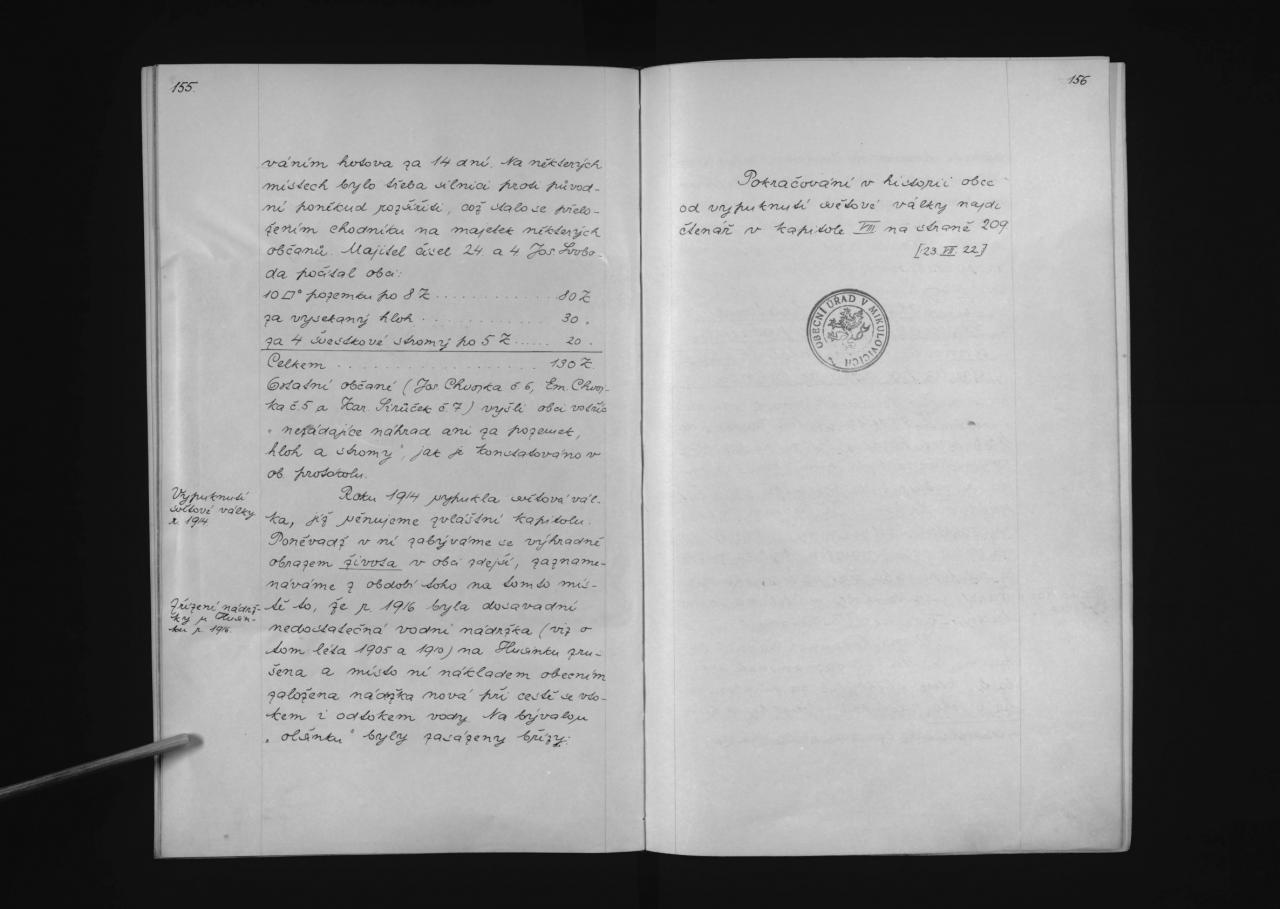 155.
váním hotova za 14 dní. Na některých
místech bylo třeba silnici proti původ-
ní poněkud rozšířiti, což stalo se přelo-
žením chodníku na majetek některých
občanů. Majitel čísel 24 a 4 Jos. Svobo-
da počítal obci:
10 □° pozemku po 8 K .......... 80 K
za vysekaný hloh .......... 30 "
za 4 švestkové stromy po 5 K ...... 20 "
Celkem .......... 130 K.
Ostatní občané (Jos. Chvojka č. 6, Em. Chvoj-
ka č. 5 a Kar. Sirůček č. 7) vyšli obci vstříc
"nežádajíce náhrad ani za pozemek,
hloh a stromy", jak je konstatováno v
ob. protokolu.
Vypuknutí
světové války
r. 1914.
Roku 1914 vypukla světová vál-
ka, jíž věnujeme zvláštní kapitolu.
Poněvadž v ní zabýváme se výhradně
obrazem života v obci zdejší, zazname-
náváme z období toho na tomto mís-
tě to, že r. 1916 byla dosavadní
Zřízení nádrž-
ky u
r. 1916.
nedostatečná vodní nádržka (viz o
tom léta 1905 a 1910) na zru-
šena a místo ní nákladem obecním
založena nádržka nová při cestě se vto-
kem i odtokem vody. Na bývalou
"olšinku" byly zasázeny břízy.
156
Pokračování v historii obce
od vypuknutí světové války najde
čtenář v kapitole VIII na straně 209
[23. VII. 22]
OBECNÍ ÚŘAD V MIKULOVICÍCH